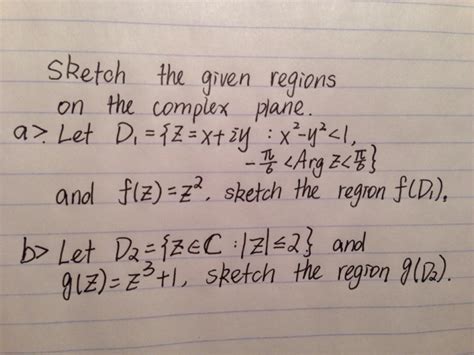 Sketch the given regions
on the complex plane.
a> Let D₁ = {z = x + iy : x²-y²<1,
-π/6 <Arg z< π/6}
and f(z) = z², sketch the region f(D₁).
b> Let D₂ = {z∈ℂ : |z|≤2} and
g(z) = z³+1, sketch the region g(D₂).